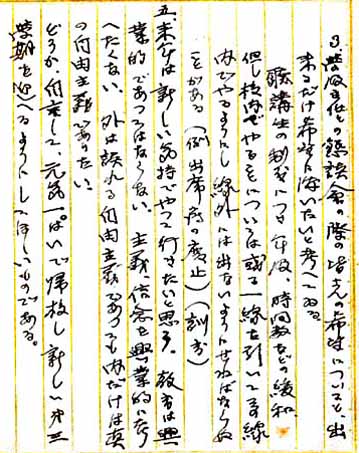 3. 階段主任との懇談会の際の皆さんの希望についても、出
来るだけ希望に添いたいと考へてゐる。
聴講生の制度につき年限、時間数などの緩和、
但し校内でやることについては或る一線を引いてその線
内でやるようにし線外には出ないようにせねばならぬ
ことがある（例 出席簿の廃止）（
五、来年は新しい気持でやって行きたいと思う。教育は興
業的であってはならない。主義、信念を興業的になら
へたくない。外は誤れる自由主義であっても内だけは真
の自由主義でありたい。
どうか、自重して、元気一ぱいで帰校し新しい第三
学期を迎へるようにしてほしいものである。